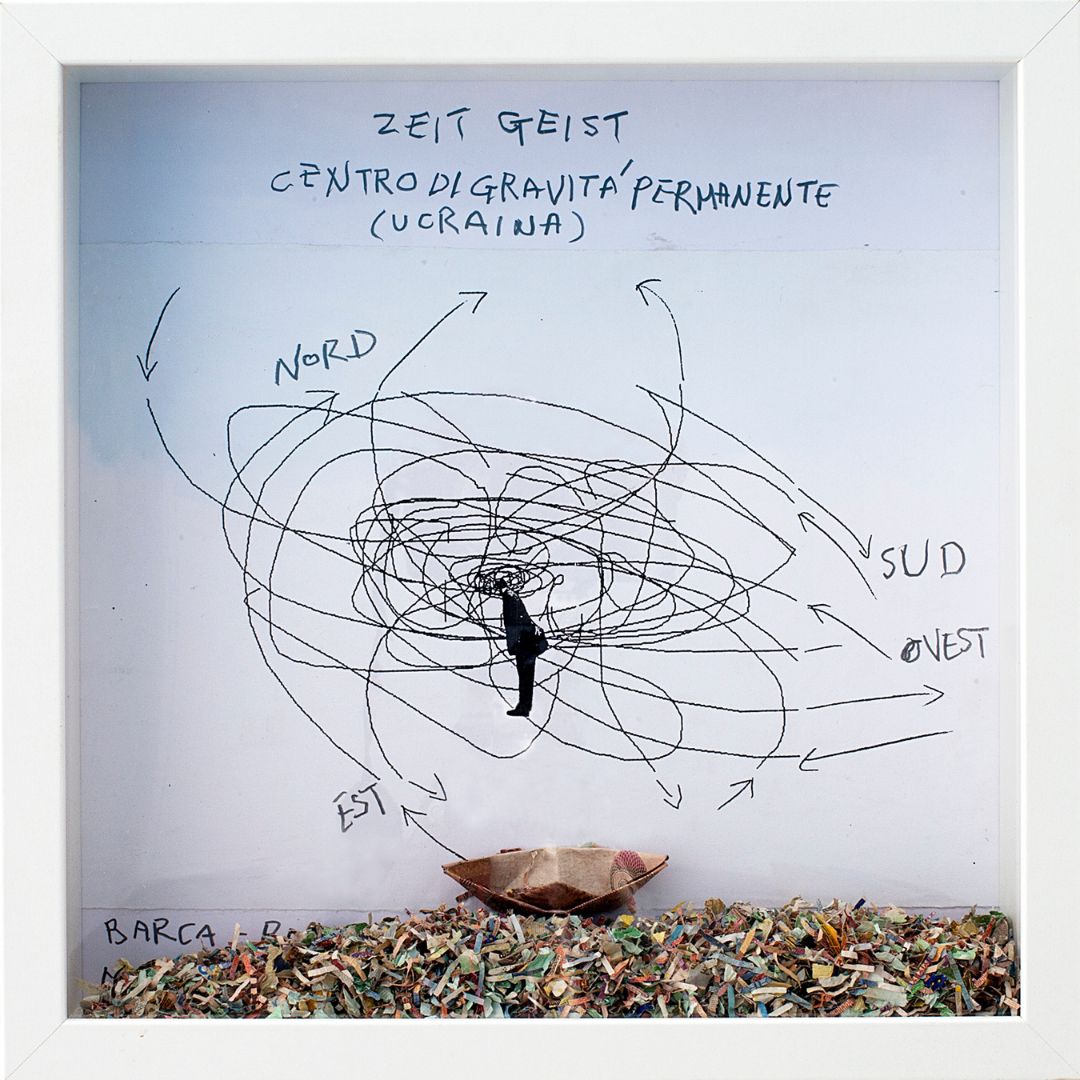 ZEIT GEIST
CENTRO DI GRAVITÁ PERMANENTE
(UCRAINA)
NORD
SUD
OVEST
EST
BARCA -